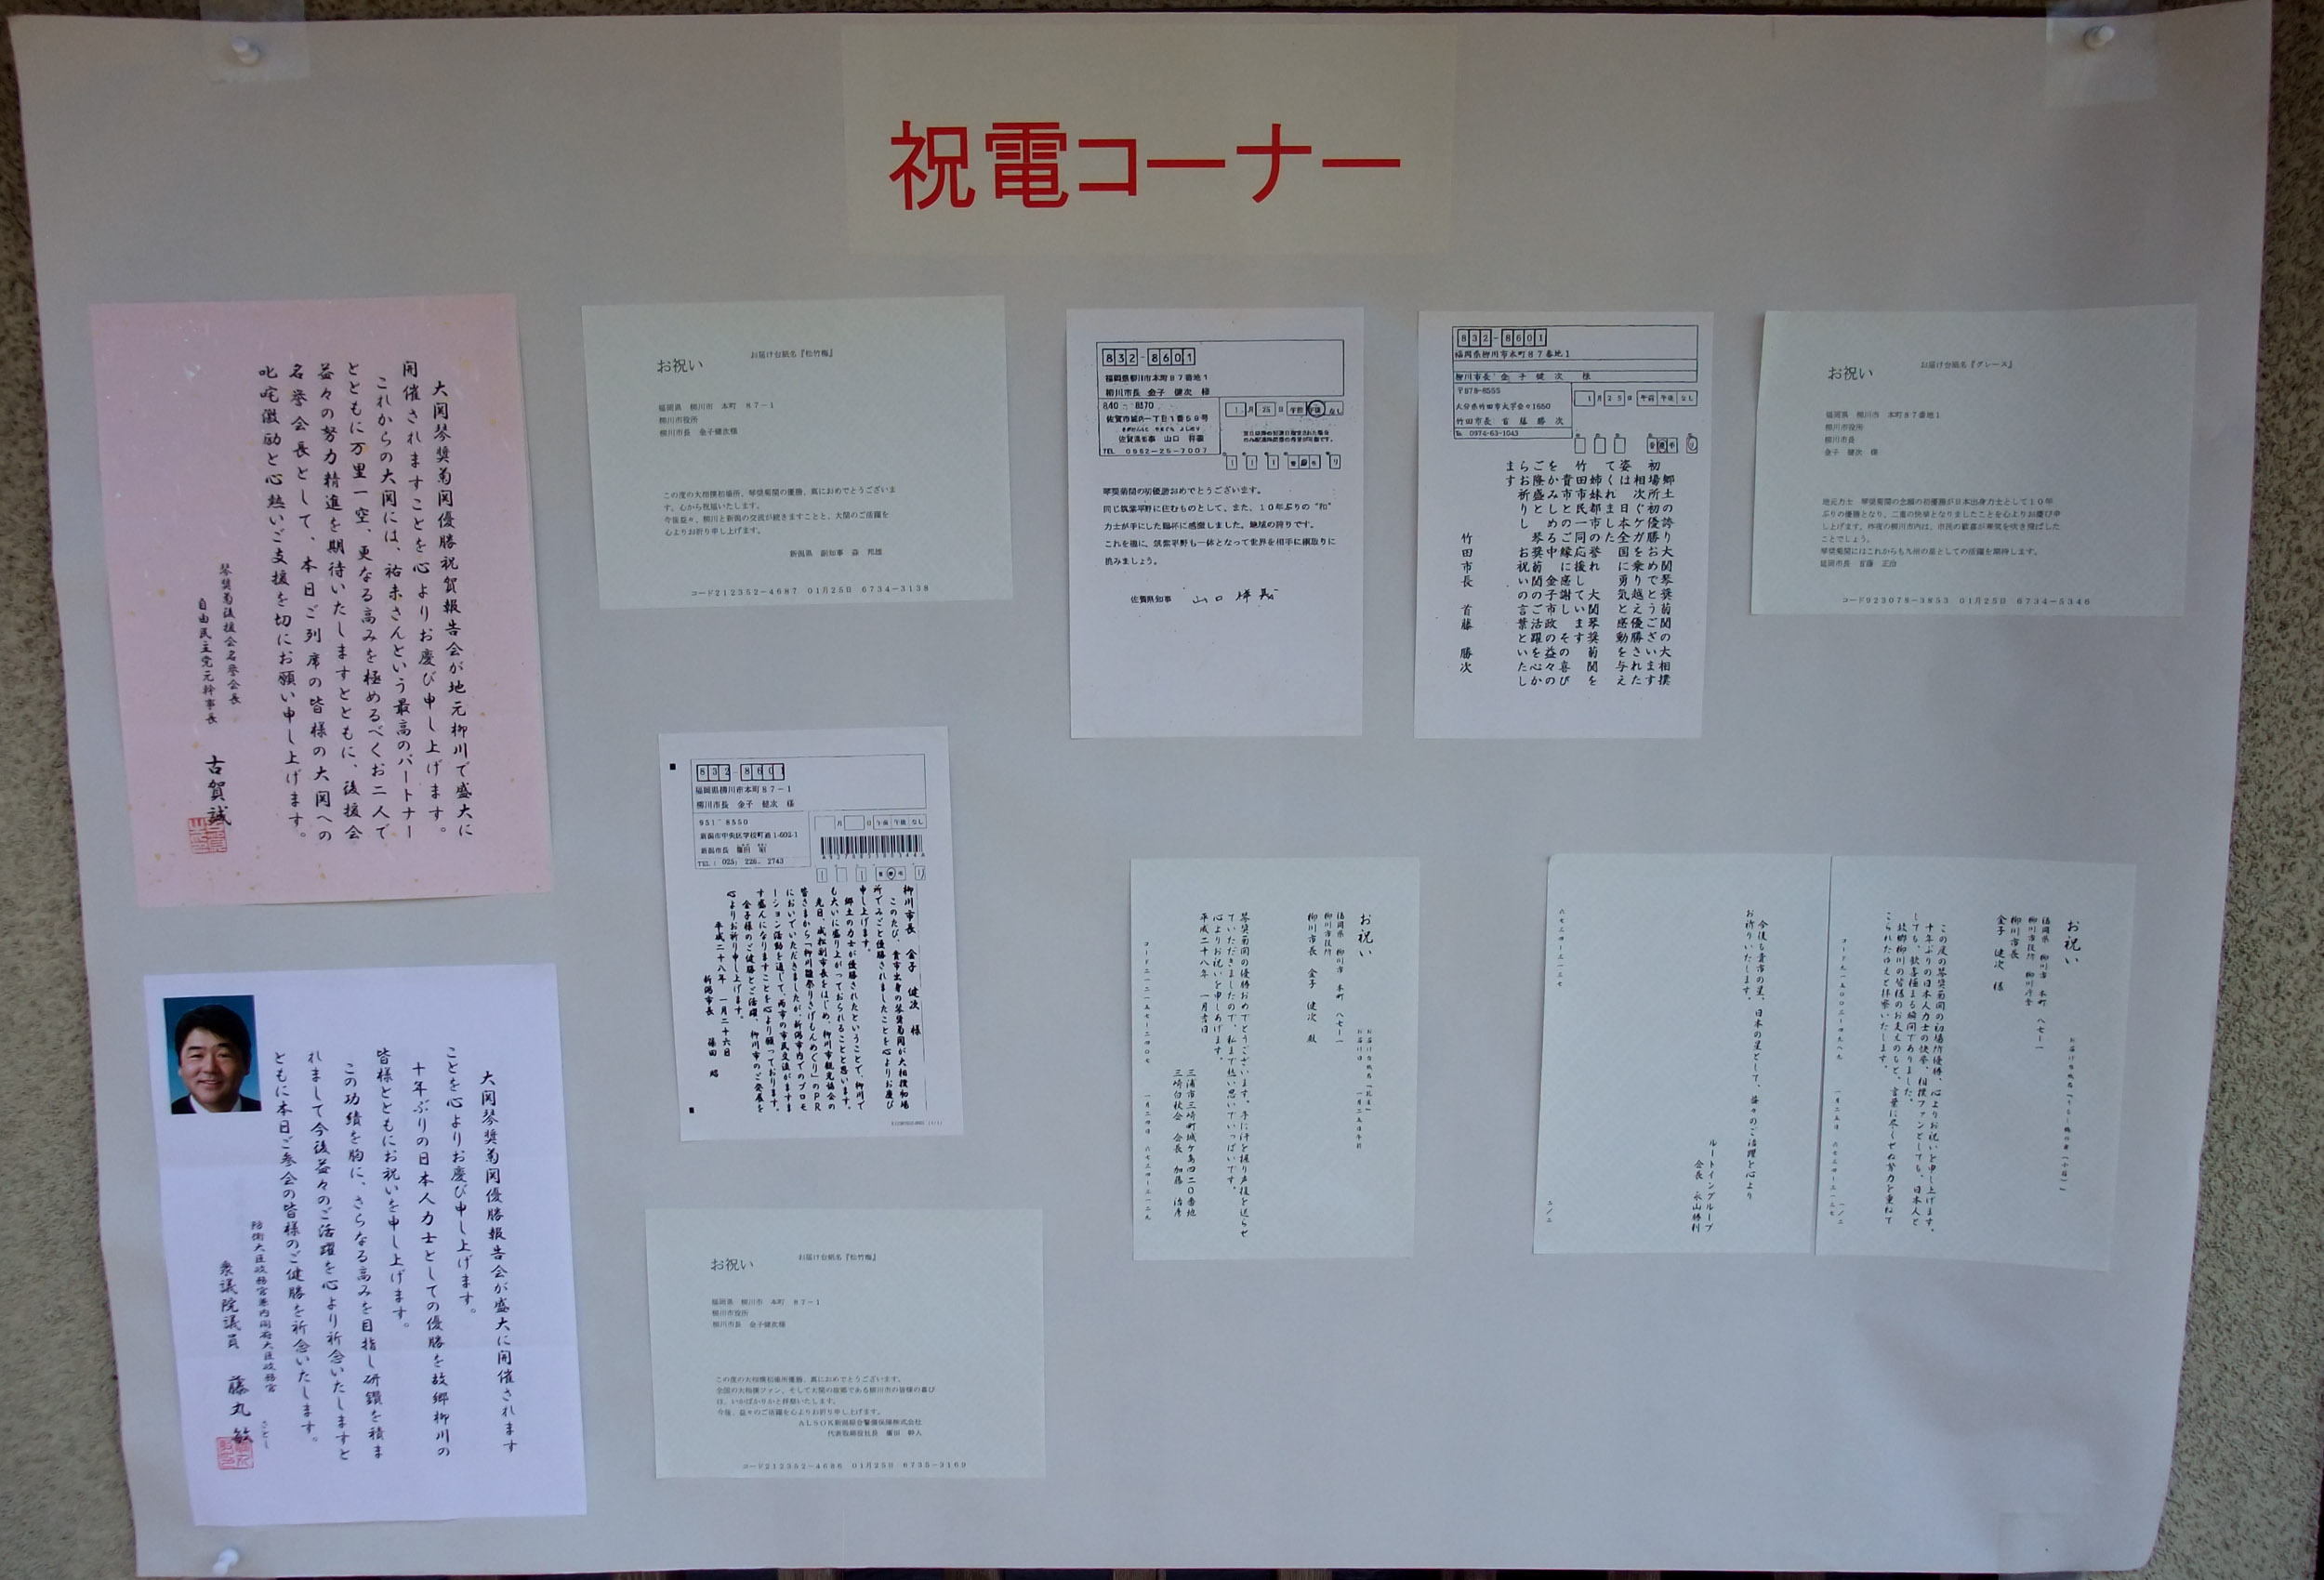 祝電コーナー
大関琴奨菊関優勝祝賀報告会が地元柳川で盛大に
開催されますことを心よりお慶び申し上げます。
これからの大関には、祐未さんという最高のパートナー
とともに万里一空、更なる高みを極めるべくお二人で
益々の努力精進を期待いたしますとともに、後援会
名誉会長として、本日ご列席の皆様の大関への
叱咤激励と心熱いご支援を切にお願い申し上げます。
琴奨菊後援会名誉会長
自由民主党元幹事長
古賀誠
お祝い
お届け台紙名『松竹梅』
福岡県 柳川市 本町 87-1
柳川市役所
柳川市長 金子健次様
この度の大相撲初場所、琴奨菊関の優勝、真におめでとうございま
す。心から祝福いたします。
今後益々、柳川と新潟の交流が続きますことと、大関のご活躍を
心よりお祈り申し上げます。
新潟県 副知事 森 邦雄
コード212352-4687 01月25日 6734-3138
832-8601
福岡県柳川市本町87番地1
柳川市長 金子 健次 様
840-8570
佐賀市城内一丁目1番59号
佐賀県知事 山口 祥義
TEL 0952-25-7007
1月25日 午前 午後 なし
琴奨菊関の初優勝おめでとうございます。
同じ筑紫平野に住むものとして、また、10年ぶりの“和”
力士が手にした賜杯に感激しました。地域の誇りです。
これを機に、筑紫平野も一体となって世界を相手に綱取りに
挑みましょう。
佐賀県知事 山口祥義
832-8601
福岡県柳川市本町87番地1
柳川市長 金子 健次 様
〒878-8555
大分県竹田市大字会々1650
竹田市長 首藤 勝次
℡ 0974-63-1043
1月25日 午前 午後 なし
郷土の誇り大関琴奨菊関の大相撲
初場所初優勝おめでとうございます
相次ぐケガを乗り越え優勝された
姿は 日本全国に勇気と感動を与え
てくれました
姉妹都市の誉れ 大関琴奨菊関を
竹田市民一同応援しています
貴市とのご縁に感謝し その喜び
をかみしめる中 金子市政の益々の
ご隆盛と 琴奨菊関のご活躍を心か
らお祈りし お祝いの言葉といたし
ます
竹田市長 首藤 勝次
お祝い
お届け台紙名『グレース』
福岡県 柳川市 本町87番地1
柳川市役所
柳川市長
金子 健次 様
地元力士 琴奨菊関の念願の初優勝が日本出身力士として10年
ぶりの優勝となり、二重の快挙となりましたことを心よりお慶び申
し上げます。昨夜の柳川市内は、市民の歓喜が寒気を吹き飛ばした
ことでしょう。
琴奨菊関にはこれからも九州の星としての活躍を期待します。
延岡市長 首藤 正治
コード923078-3853 01月25日 6734-5346
832-8601
福岡県柳川市本町87-1
柳川市長 金子 健次 様
951-8550
新潟市中央区学校町通1-602-1
新潟市長 篠田 昭
TEL: 025; 226- 2743
月 日 午前 午後 なし
柳川市長 金子 健次 様
このたび、貴市出身の琴奨菊関が大相撲初場
所でみごと優勝されましたことを心よりお慶び
申し上げます。
郷土の力士が優勝されたということで、柳川で
も大いに盛り上がっておられることと思います。
先日、成松副市長をはじめ、柳川市観光協会の
皆さまから「柳川雛祭りさげもんめぐり」のPR
においでいただきましたが、新潟市内でのプロモ
ーション活動を通じて、両市の市民交流がますま
す盛んになりますことを心より願っております。
金子様のご健勝とご活躍、柳川市のご発展を
心よりお祈り申し上げます。
平成二十八年 一月二十六日
新潟市長 篠田 昭
お祝い
福岡県 柳川市 本町 八七一一
柳川市役所
柳川市長 金子 健次 殿
琴奨菊関の優勝おめでとうございます。手に汗を握り声援を送らせ
ていただきましたので、私まで熱い思いでいっぱいです。
心よりお祝いを申しあげます。
平成二十八年 一月吉日
三浦市三崎町城ケ島四二〇番地
三崎白秋会 会長 加藤 治彦
お祝い
福岡県 柳川市 本町 八七一一
柳川市役所 柳川市舎
柳川市長
金子 健次 様
この度の琴奨菊関の初場所優勝、心よりお祝いを申し上げます。
十年ぶりの日本人力士の快挙、相撲ファンとしても、日本人と
しても、歓喜極まる瞬間でありました。
故郷柳川の皆様のお支えのもと、言葉に尽くせぬ努力を重ねて
こられたゆえと拝察いたします。
今後も貴市の星、日本の星として、益々のご活躍を心より
お祈りいたします。
ルートイングループ
会長 永山勝利
二/二
大関琴奨菊関優勝報告会が盛大に開催されます
ことを心よりお慶び申し上げます。
十年ぶりの日本人力士としての優勝を故郷柳川の
皆様とともにお祝いを申し上げます。
この功績を胸に、さらなる高みを目指し研鑽を積ま
れまして今後益々のご活躍を心より祈念いたしますと
ともに本日ご参会の皆様のご健勝を祈念いたします。
防衛大臣政務官兼内閣府大臣政務官
衆議院議員 藤丸 敏
さとし
お祝い
お届け台紙名『松竹梅』
福岡県 柳川市 本町 87-1
柳川市役所
柳川市長 金子健次様
この度の大相撲初場所優勝、真におめでとうございます。
全国の大相撲ファン、そして大関の故郷である柳川市の皆様の喜び
は、いかばかりかと拝察いたします。
今後、益々のご活躍を心よりお祈り申し上げます。
ALSOK新潟綜合警備保障株式会社
代表取締役社長 廣田 幹人
コード212352-4686 01月25日 6735-3169